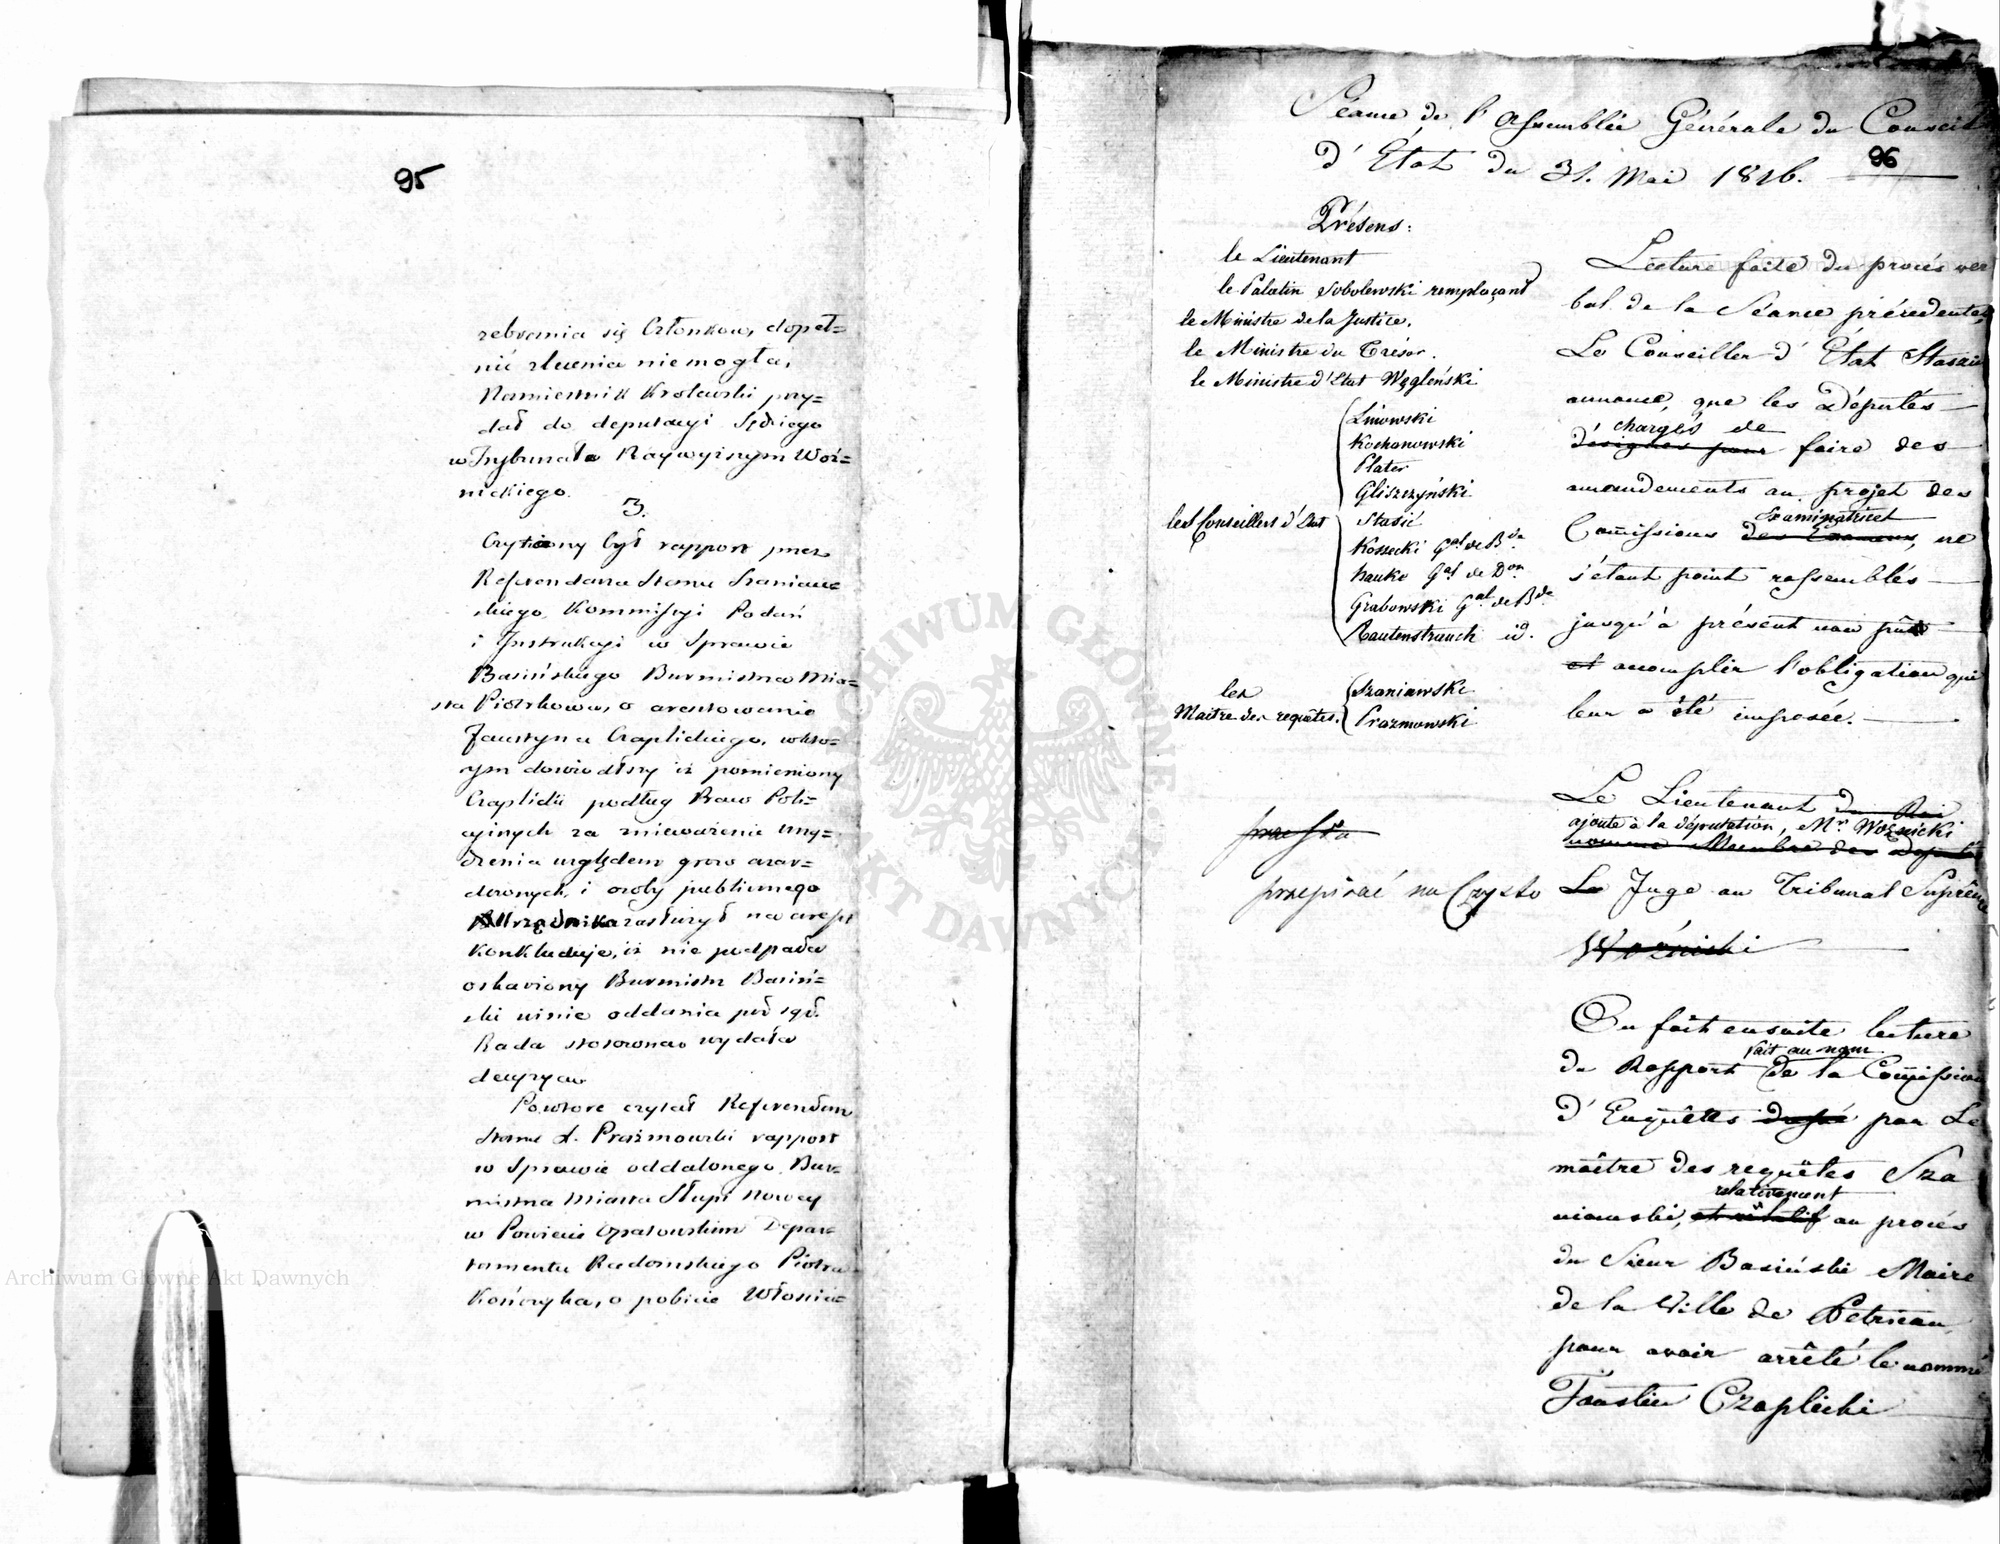 95
zebrania się Członkow, dopeł=
nić zlecenia niemogła,
Namiestnik Krolewski przy=
dał do deputacyi Sędziego
w Trybunale Naywyższym Woź=
nickiego.
3.
Czytany był rapport przez
Referendarza Stanu Szaniaw=
skiego Kommissyi Podań
i Instrukcyi w Sprawie
Basińskiego Burmistrza Mia=
sta Piotrkowa, o aresztowanie
Faustyna Czaplickiego, w któ=
rym dowiodłszy iż pomieniony
Czaplicki podług Praw Poli=
cyinych za znieważenie Urzą=
dzenia względem grow azar=
downych i osoby publicznego
Urzędnika zasłużył na areszt
Konkluduje, iż nie podpada
oskarżony Burmistrz Basiń=
ski winie oddania pod sąd.
Rada stosowną wydała
decyzyą
Powtore czytał Referendarz
Stanu X. Prażmowski rapport
w Sprawie oddalonego Bur=
mistrza Miasta Słupi Nowey
w Powiecie Opatowskim Depar=
tamentu Radomskiego Piotra
Kończyka, o pobicie Włościa=
Séance de l'Assemblée Générale du Conseil
d'État du 31. Mai 1816.
96
Présens:
le Lieutenant
le Palatin Sobolewski remplaçant
le Ministre de la Justice.
le Ministre du Trésor.
le Ministre d'Etat Węgleński
les Conseillers d'Etat
Linowski
Kochanowski
Plater
Gliszczyński
Stasic
Kossecki Gal de Bde
Hauke Gal de Don
Grabowski Gal de Bde
Rautenstrauch id.
les
Maitre des requêtes.
Szaniawski
Prazmowski
przepisać na Czysto
Lecture faite du procés ver
bal de la Séance précedente,
Le Conseiller d'État Stasic
annonce, que les Députés
chargés de
désignes pour faire des
amandements au projet des
Examinatrices
Commissions des Examens, ne
s'étant point rassemblés
jusqu'à présent non pût
et accomplir l'obligation qui
leur a été imposée.
Le Lieutenant du Roi
ajoute à la députation, Mr Woźnicki
nomme Membre des Députés
Le Juge au Tribunal Suprême
Woźnicki
On fait ensuite lecture
fait au nom
du Rapport de la Commission
d'Enquêtes par Le
maître des requêtes Sza
relativement
niawski, et rélatif au procés
du Sieur Basiński Maire
de la Ville de Petricau,
pour avoir arrêté le nommé
Faustin Czaplicki
Archiwum Główne Akt Dawnych
ARCHIWUM GŁÓWNE AKT DAWNYCH